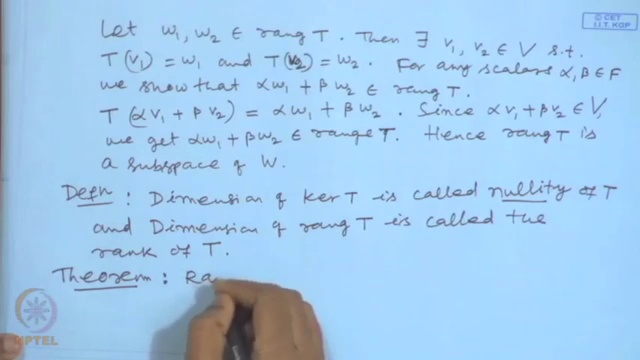 © CET
I.I.T. KGP
Let w₁, w₂ ∈ rang T. Then ∃ v₁, v₂ ∈ V s.t.
T(v₁) = w₁ and T(v₂) = w₂. For any scalars α, β ∈ F
we show that αw₁ + βw₂ ∈ rang T.
T(αv₁ + βv₂) = αw₁ + βw₂. Since αv₁ + βv₂ ∈ V,
we get αw₁ + βw₂ ∈ range T. Hence rang T is
a subspace of W.
Defn : Dimension of ker T is called nullity of T
and Dimension of rang T is called the
rank of T.
Theorem : Ra
NPTEL